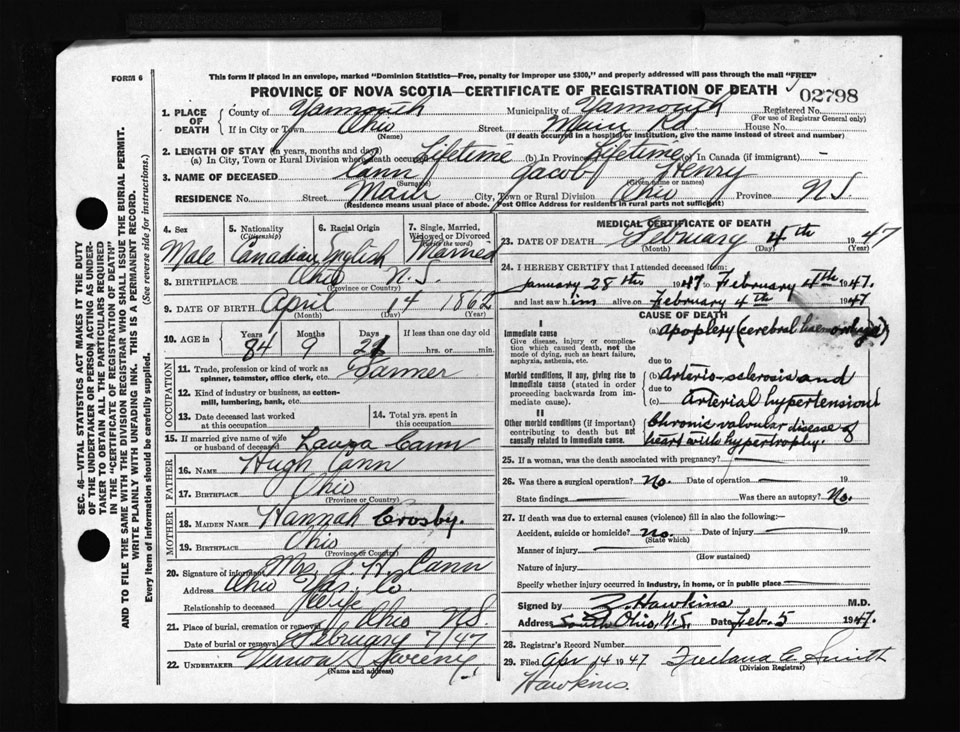 FORM 6
This form if placed in an envelope, marked "Dominion Statistics—Free, penalty for improper use $300," and properly addressed will pass through the mail "FREE"
PROVINCE OF NOVA SCOTIA—CERTIFICATE OF REGISTRATION OF DEATH
02798
1. PLACE OF DEATH County of Yarmouth Municipality of Yarmouth Registered No.
(For use of Registrar General only)
If in City or Town Ohio Street Main Rd House No.
(Name) (If death occurred in a hospital or institution, give the name instead of street and number)
2. LENGTH OF STAY (in years, months and days)
(a) In City, Town or Rural Division where death occurred Lifetime (b) In Province Lifetime (c) In Canada (if immigrant)
3. NAME OF DECEASED Cann Jacob Henry
(Surname) (Given name or names)
RESIDENCE No. Street Main City, Town or Rural Division Ohio Province N.S.
(Residence means usual place of abode. Post Office Address for residents in rural parts not sufficient)
4. Sex 5. Nationality (Citizenship) 6. Racial Origin 7. Single, Married, Widowed or Divorced (Write the word)
Male Canadian English Married
8. BIRTHPLACE Ohio N.S.
(Province or Country)
9. DATE OF BIRTH April 14 1862
(Month) (Day) (Year)
10. AGE IN Years Months Days If less than one day old
84 9 21 hrs. or min.
OCCUPATION
11. Trade, profession or kind of work as spinner, teamster, office clerk, etc. Farmer
12. Kind of industry or business, as cotton-mill, lumbering, bank, etc.
13. Date deceased last worked at this occupation 14. Total yrs. spent in this occupation
15. If married give name of wife or husband of deceased Laura Cann
FATHER
16. NAME Hugh Cann
17. BIRTHPLACE Ohio
(Province or Country)
MOTHER
18. MAIDEN NAME Hannah Crosby.
19. BIRTHPLACE Ohio
(Province or Country)
20. Signature of informant Mrs. J. H. Cann
Address Ohio Yar. Co.
Relationship to deceased Wife
21. Place of burial, cremation or removal Ohio N.S.
Date of burial or removal February 7/47
22. UNDERTAKER Sweeny
(Name and address)
MEDICAL CERTIFICATE OF DEATH
23. DATE OF DEATH February 4th 1947
(Month) (Day)
24. I HEREBY CERTIFY that I attended deceased from:
January 28th 1947 to February 4th 1947.
and last saw him alive on February 4th 1947
CAUSE OF DEATH
I
Immediate cause
Give disease, injury or complication which caused death, not the mode of dying, such as heart failure, asphyxia, asthenia, etc.
(a) apoplexy (cerebral haemorrhage)
due to
Morbid conditions, if any, giving rise to immediate cause (stated in order proceeding backwards from immediate cause).
(b) Arterio-sclerosis and
due to
(c) Arterial hypertension
II
Other morbid conditions (if important) contributing to death but not causally related to immediate cause.
Chronic valvular disease of
heart with hypertrophy.
25. If a woman, was the death associated with pregnancy?
26. Was there a surgical operation? No. Date of operation 19
State findings Was there an autopsy? No.
27. If death was due to external causes (violence) fill in also the following:—
Accident, suicide or homicide? no. Date of injury 19
(State which)
Manner of injury
(How sustained)
Nature of injury
Specify whether injury occurred in industry, in home, or in public place
Signed by Z. Hawkins M.D.
Address South Ohio, N.S. Date Feb. 5 1947.
28. Registrar's Record Number
29. Filed Apr 14 1947 Smith
(Division Registrar)
Hawkins.
SEC. 46—VITAL STATISTICS ACT MAKES IT THE DUTY
OF THE UNDERTAKER OR PERSON ACTING AS UNDER-
TAKER TO OBTAIN ALL THE PARTICULARS REQUIRED
IN THE "CERTIFICATE OF REGISTRATION OF DEATH"
AND TO FILE THE SAME WITH THE DIVISION REGISTRAR WHO SHALL ISSUE THE BURIAL PERMIT.
WRITE PLAINLY WITH UNFADING INK. THIS IS A PERMANENT RECORD.
Every item of information should be carefully supplied. (See reverse side for instructions.)